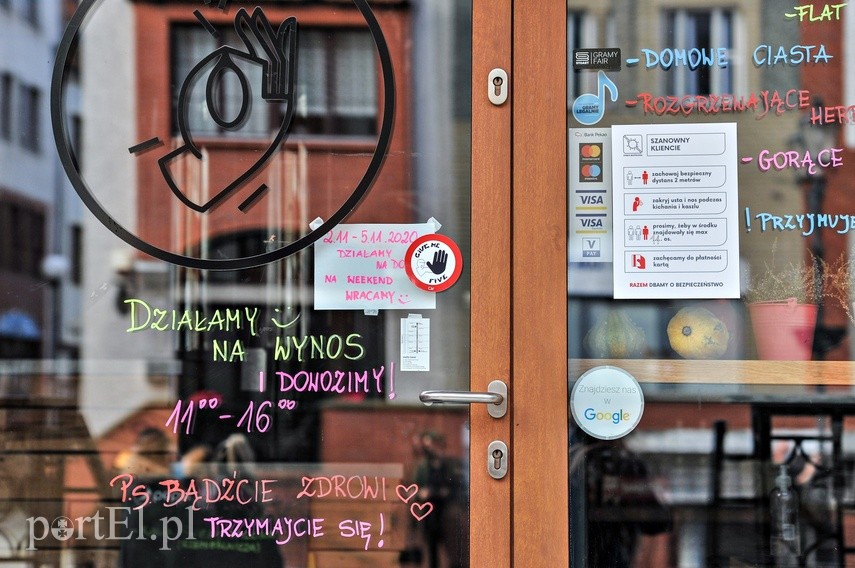 -FLAT
-DOMOWE CIASTA
-ROZGRZEWAJĄCE
- GORĄCE
! PRZYJMUJE
GRAMY FAIR
GRAMY LEGALNIE
Bank Pekao
VISA
VISA
V PAY
SZANOWNY
KLIENCIE
zachowaj bezpieczny
dystans 2 metrów
zakryj usta i nos podczas
kichania i kaszlu
prosimy, żeby w środku
znajdowały się max
os.
zachęcamy do płatności
kartą
RAZEM DBAMY O BEZPIECZEŃSTWO
2.11 - 5.11.2020
DZIAŁAMY
NA DO
NA WEEKEND
WRACAMY :)
GIVE ME
FIVE
DZIAŁAMY :)
NA WYNOS
I DOWOZIMY!
11⁰⁰-16⁰⁰
Znajdziesz nas
w
Google
P.S. BĄDŹCIE ZDROWI
TRZYMAJCIE SIĘ!
portEl.pl